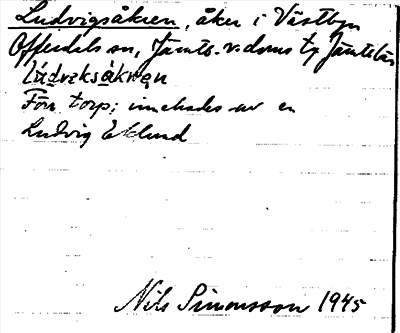 Ludvigsåkren, åker i Västbyn
Offerdals sn, Jämts. v. doms tg Jämtl. län
lúdvɩksåkrɐn
Förr torp; innehades av en
Ludvig Eklund
Nils Simonsson 1945